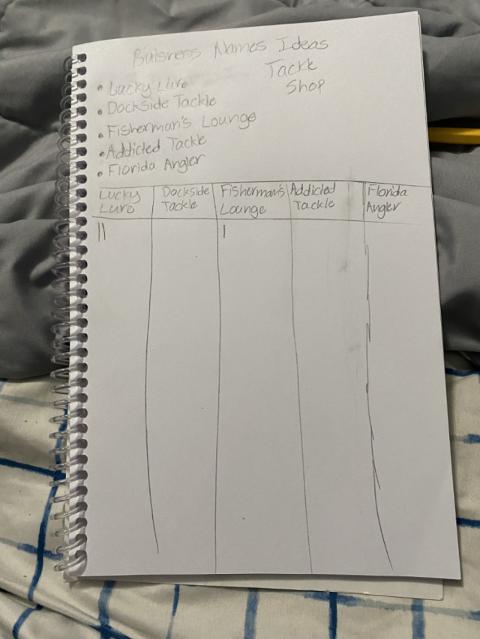 Buisness Names Ideas
Tackle
Shop
• Lucky Lure
• Dockside Tackle
• Fisherman's Lounge
• Addicted Tackle
• Florida Angler
Lucky Lure
Dockside Tackle
Fisherman's Lounge
Addicted Tackle
Florida Angler
|| |